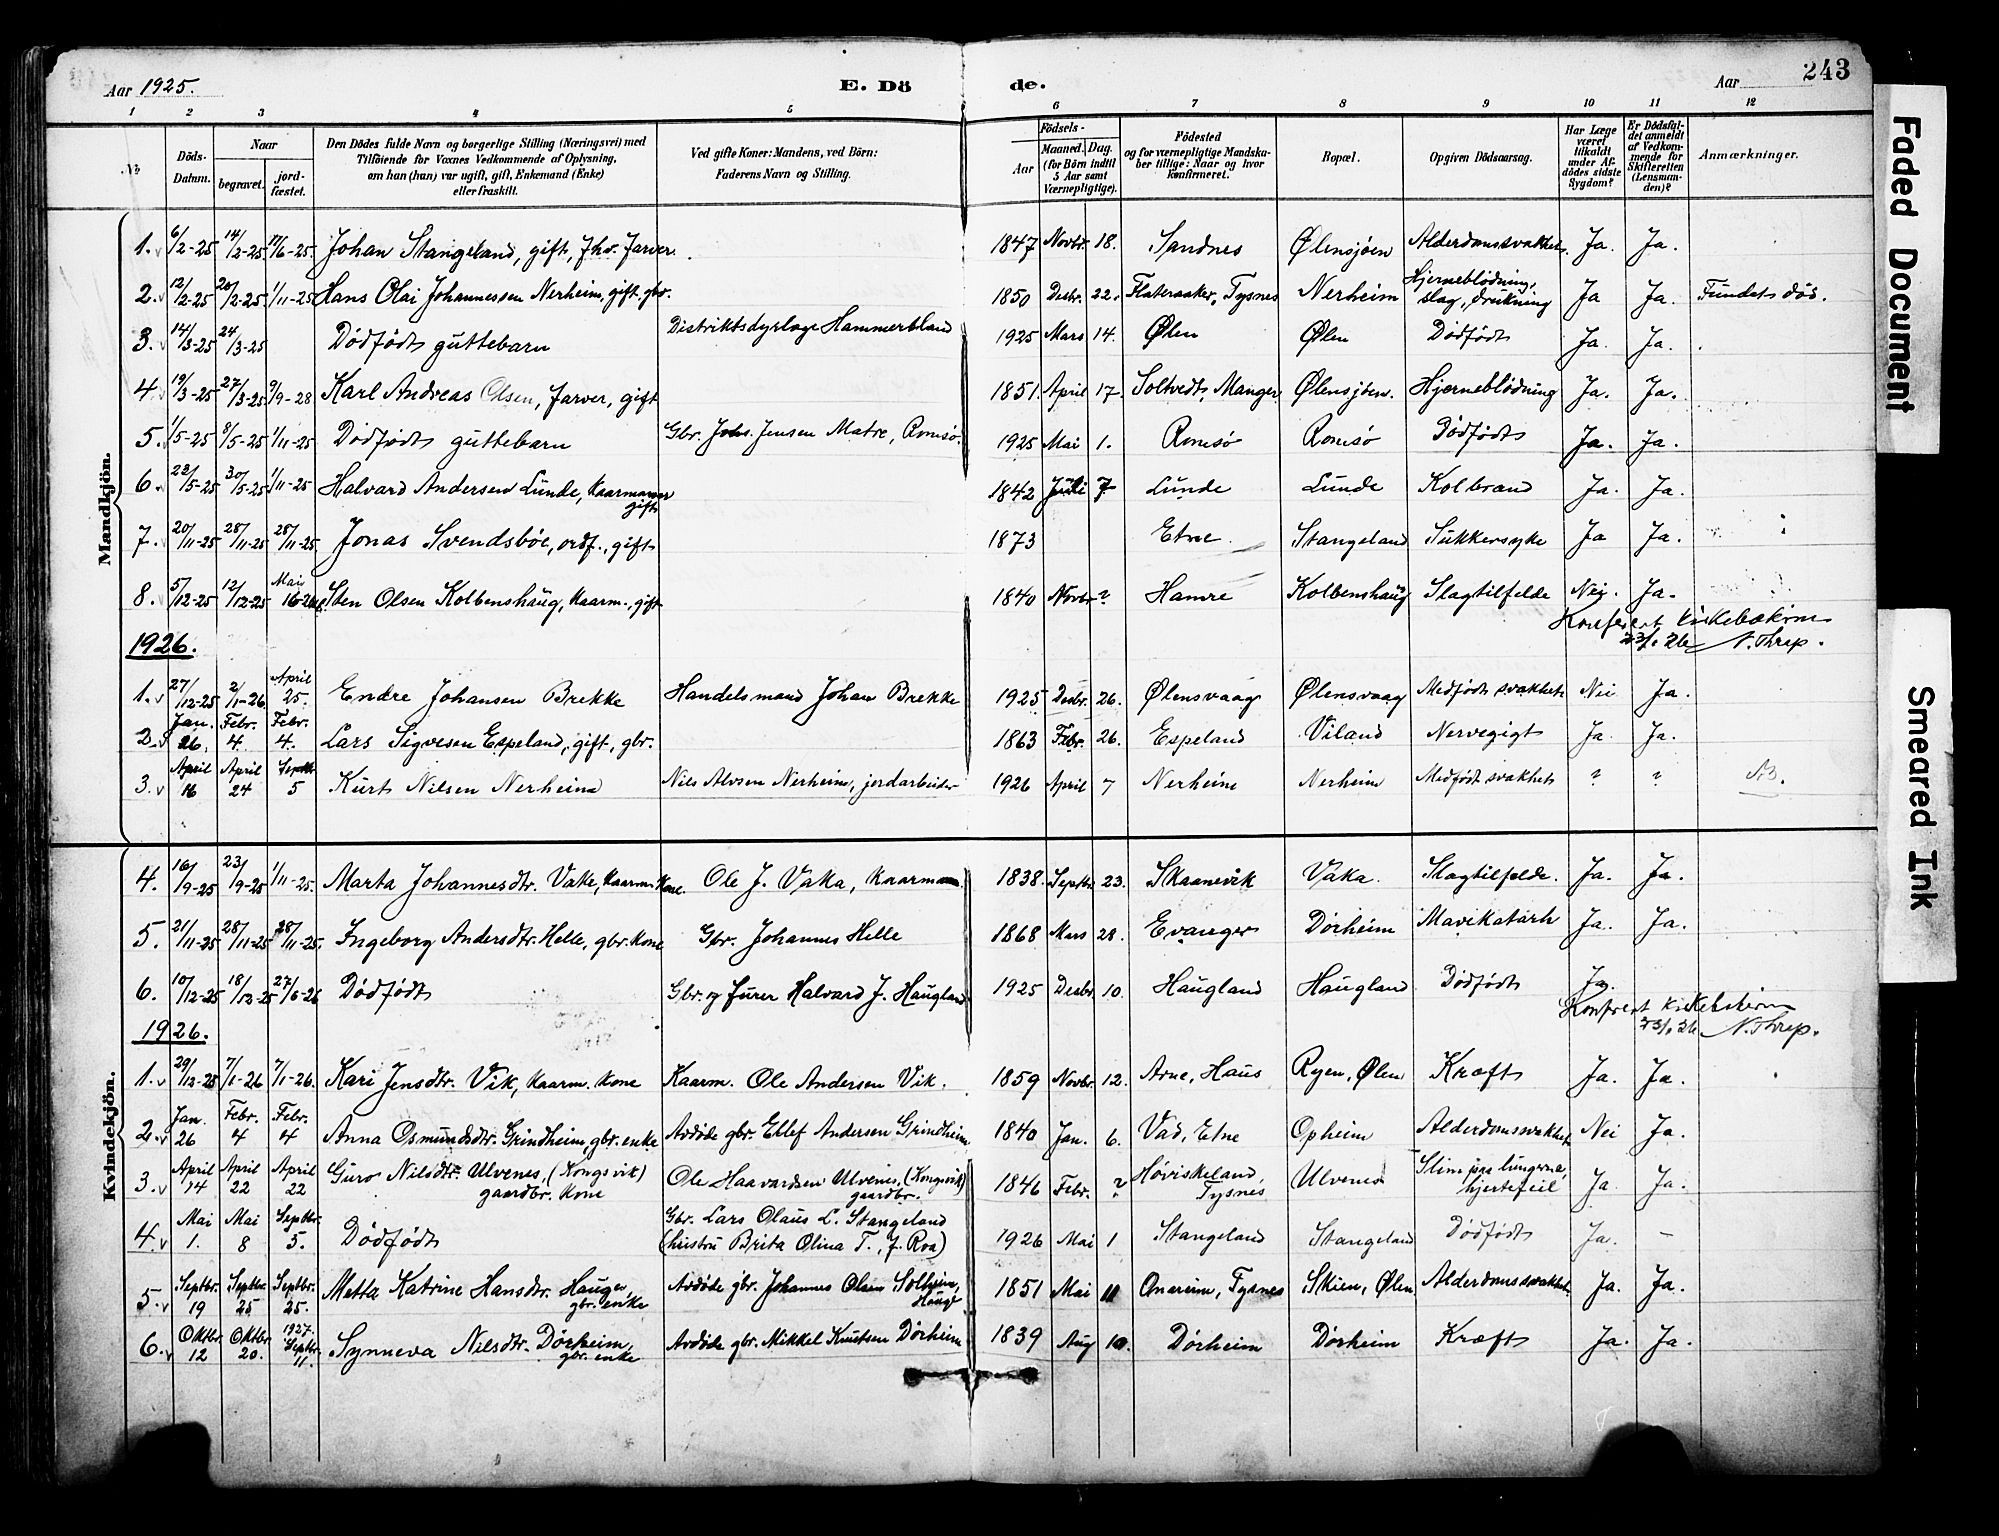 Aar 1925.
E. Dö
de.
Aar
243
1 2 3 4 5 6 7 8 9 10 11 12
№
Döds-Datum.
Naar
begravet.
jord-fæstet.
Den Dödes fulde Navn og borgerlige Stilling (Næringsvei) med
Tilföiende for Voxnes Vedkommende af Oplysning,
om han (hun) var ugift, gift, Enkemand (Enke)
eller fraskilt.
Ved gifte Koner: Mandens, ved Börn:
Faderens Navn og Stilling.
Födsels-
Aar
Maaned. Dag.
(for Börn indtil
5 Aar samt
Værnepligtige).
Födested
og for værnepligtige Mandska-
ber tillige: Naar og hvor
konfirmeret.
Bopæl.
Opgiven Dödsaarsag.
Har Læge
været
tilkaldt
under Af-
dödes sidste
Sygdom?
Er Dödsfal-
det anmeldt
af Vedkom-
mende for
Skifteretten
(Lensman-
den)?
Anmærkninger.
Mandkjön.
1. 6/2-25 14/2-25 11/6-25 Johan Stangeland, gift, fhv. farver 1847 Novbr. 18. Sandnes Ølensjøen Alderdomssvakhet. Ja. Ja.
2. 12/2-25 20/2-25 1/11-25 Hans Olai Johannessen Nerheim, gift, gbr. 1850 Desbr. 22. Flateraaker, Tysnes Nerheim Hjerneblödning, slag, drukning Ja Ja. Fundet död.
3. 14/3-25 24/3-25 Dödfödt guttebarn Distriktsdyrlæge Hammerbland 1925 Mars 14. Ølen Ølen Dödfödt Ja. Ja.
4. 19/3-25 27/3-25 9/9-28 Karl Andreas Olsen, farver, gift 1851 April 17. Soltvedt, Manger Ølensjöen. Hjerneblödning Ja. Ja.
5. 1/5-25 8/5-25 1/11-25 Dödfödt guttebarn Gbr. Johs. Jensen Matre, Romsö. 1925 Mai 1. Romsö Romsö Dödfödt Ja. Ja.
6. 23/5-25 30/5-25 1/11-25 Halvard Andersen Lunde, kaarmann gift 1842 Juli 7 Lunde Lunde Kolbrand Ja. Ja.
7. 20/11-25 28/11-25 28/11-25 Jonas Svendsböe, ordf., gift 1873 Etne. Stangeland Sukkersyke Ja Ja.
8. 5/12-25 12/12-25 Mai 16-26 Sten Olsen Kolbenshaug, kaarm., gift 1840 Novbr ? Hamre Kolbenshaug Slagtilfelde Nei. Ja.
Konferert kirkebökerne
23/1 26 N. Threp.
1926.
1. 27/12-25 2/1-26 April 25. Endre Johansen Brekke Handelsmand Johan Brekke 1925 Desbr. 26. Ølensvaag Ølensvaag Medfödt svakhet Nei Ja.
2. Jan. 26. Febr. 4. Febr. 4. Lars Sigvesen Espeland, gift, gbr. 1863 Febr. 26. Espeland Viland Nervegigt Ja. Ja.
3. April 16 April 24 Septbr 5 Kurt Nilsen Nerheim Nils Alvsen Nerheim, jordarbeider 1926 April 7 Nerheim Nerheim Medfödt svakhet ? ?
Kvindekjön.
4. 16/9-25 23/9-25 1/11-25. Marta Johannesdtr. Vake, kaarm. kone Ole J. Vaka, kaarmann. 1838. Septbr. 23. Skaanevik Vaka. Slagtilfelde. Ja. Ja.
5. 21/11-25 28/11-25 28/11-25. Ingeborg Andersdtr. Helle, gbr. kone Gbr. Johannes Helle 1868 Mars 28. Evanger Dörheim Mavekatarh Ja. Ja.
6. 10/12-25 18/12-25 27/6-26 Dödfödt Gbr. og furer Halvard J. Haugland 1925 Desbr. 10. Haugland Haugland Dödfödt Ja.
Konferert kirkebökerne
23/1 26 N. Threp.
1926.
1. 29/12-25 7/1-26 7/1-26. Kari Jensdtr. Vik, kaarm. kone Kaarm. Ole Andersen Vik. 1859 Novbr. 12. Arne, Haus Ryen, Ølen Kræft Ja. Ja.
2. Jan. 26 Febr. 4 Febr. 4 Anna Osmundsdtr. Grindheim, gbr. enke Avdöde gbr. Ellef Andersen Grindheim 1840 Jan. 6. Vad, Etne Opheim Alderdomssvakhet Nei Ja.
3. April 14 April 22 April 22 Guro Nilsdtr. Ulvenes, (Kongsvik) gaardbr. kone Ole Haavardsen Ulvenes, (Kongsvik) gaardbr. 1846 Febr. ? Höviskeland, Tysnes Ulvenes Slim paa lungerne, hjertefeil Ja. Ja.
4. Mai 1. Mai 8 Septbr. 5. Dödfödt Gbr. Lars Olaus L. Stangeland (hustru Brita Olina T., f. Roa) 1926 Mai 1 Stangeland Stangeland Dödfödt Ja. -
5. Septbr. 19 Septbr. 25 Septbr. 25. Metta Katrine Hansdtr. Hauge, gbr. enke Avdöde gbr. Johannes Olsen Solheim, Hauge 1851 Mai 11 Onareim, Tysnes Skien, Ølen Alderdomssvakhet. Ja. Ja.
6. Oktbr. 12 Oktbr. 20. 1927. Septbr. 11. Synneva Nilsdtr. Dörheim, gbr. enke Avdöde gbr. Mikkel Knutsen Dörheim 1839 Aug 10. Dörheim Dörheim Kræft Ja. Ja.
Faded Document
Smeared Ink